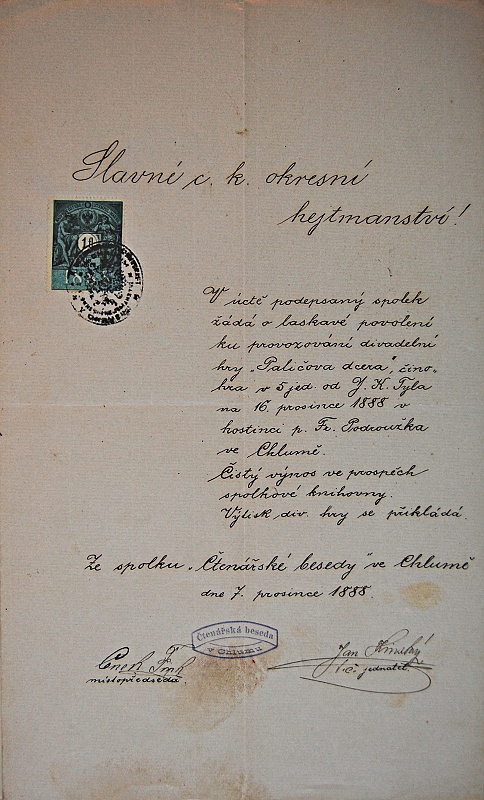 Slavné c. k. okresní
hejtmanství!
10
V úctě podepsaný spolek
žádá o laskavé povolení
ku provozování divadelní
hry „Paličova dcera", čino-
hra v 5 jed. od J. K. Tyla
na 16. prosince 1888 v
hostinci p. Fr. Podroužka
ve Chlumě.
Čistý výnos ve prospěch
spolkové knihovny.
Výtisk div. hry se přikládá.
Ze spolku „Čtenářské besedy" ve Chlumě
dne 7. prosince 1888.
Čtenářská beseda
v Chlumu
místopředseda.
Jan
jednatel